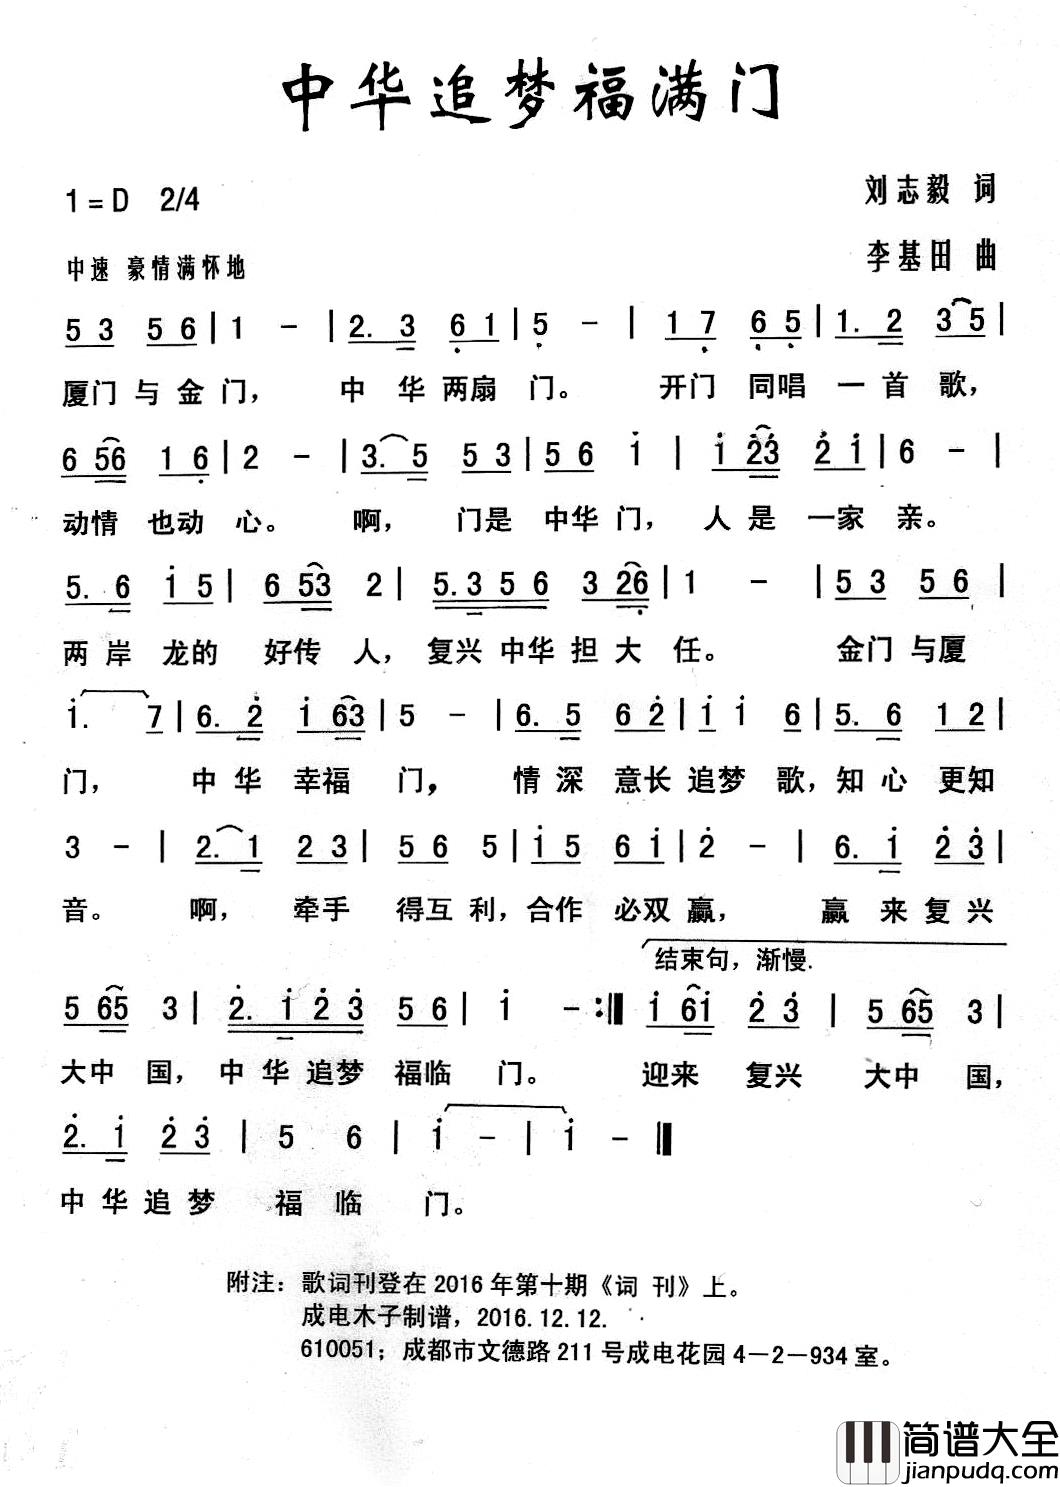 中华追梦福满门
1=D 2/4
刘志毅 词
中速 豪情满怀地
李基田 曲
5 3 5 6 | 1 - | 2. 3 6 1 | 5 - | 1 7 6 5 | 1. 2 3 5 |
厦门 与 金 门， 中 华 两扇 门。 开门 同唱 一 首 歌，
6 56 1 6 | 2 - | 3. 5 5 3 | 5 6 i | i 23 2 i | 6 - |
动情 也动 心。 啊， 门是 中华 门， 人 是 一家 亲。
5. 6 i 5 | 6 53 2 | 5.3 5 6 3 26 | 1 - | 5 3 5 6 |
两 岸 龙的 好传 人， 复兴 中华 担 大 任。 金门 与厦
i. 7 | 6. 2 i 63 | 5 - | 6. 5 6 2 | i i 6 | 5. 6 1 2 |
门， 中 华 幸福 门， 情 深 意长 追梦 歌，知 心 更知
3 - | 2. 1 2 3 | 5 6 5 | i 5 6 i | 2 - | 6. i 2 3 |
音。 啊， 牵手 得互 利，合作 必双 赢， 赢 来 复兴
结束句，渐慢.
5 65 3 | 2. i 2 3 5 6 | i - :‖ i 6i 2 3 | 5 65 3 |
大中 国， 中 华 追梦 福临 门。 迎来 复兴 大中 国，
2. i 2 3 | 5 6 | i - | i - ‖
中 华 追 梦 福 临 门。
附注：歌词刊登在2016年第十期《词 刊》上。
成电木子制谱，2016.12.12.
610051；成都市文德路211号成电花园4－2－934室。
简谱大全
jianpudq.com